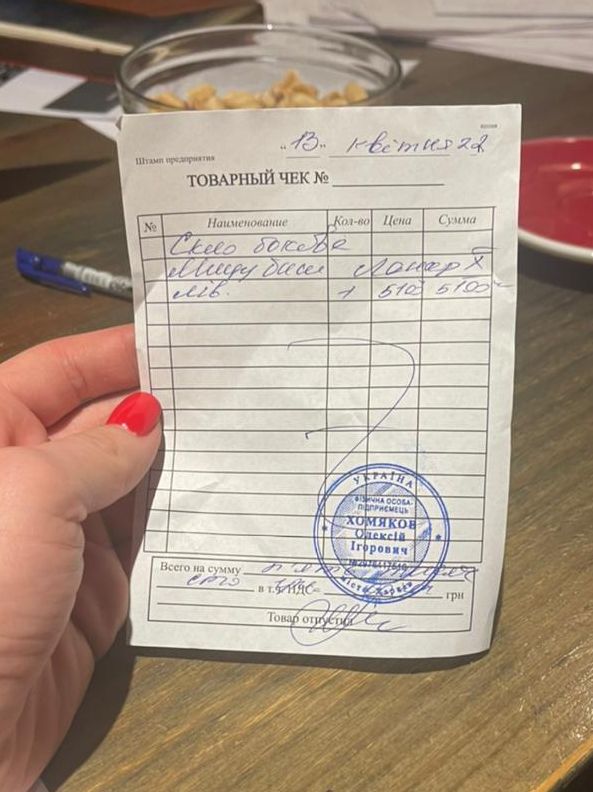 „13„ квітня 22
Штамп предприятия
ТОВАРНЫЙ ЧЕК №
№ Наименование Кол-во Цена Сумма
Скло бокове
Міцубісі Лансер X
лів. 1 5100 5100
УКРАЇНА
ФІЗИЧНА ОСОБА-
ПІДПРИЄМЕЦЬ
ХОМЯКОВ
Олексій
Ігорович
місто Харків
Всего на сумму п'ять тисяч
сто в т.ч. НДС- грн
Товар отпустил